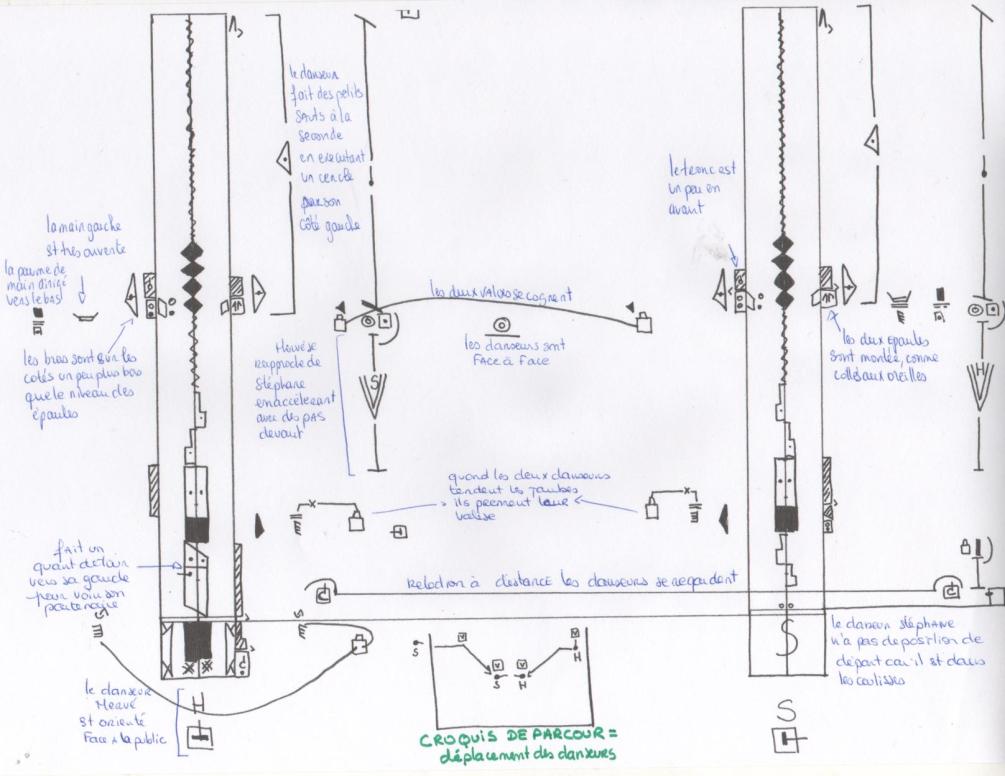 le danseur
fait des petits
sauts à la
seconde
en exécutant
un cercle
par son
côté gauche
la main gauche
st très ouverte
la paume de
main dirigé
vers le bas
les bras sont sur les
cotés un peu plus bas
que le niveau des
épaules
le tronc est
un peu en
avant
les deux valises se cognent
les danseurs sont
FACE à FACE
Hervé se
rapproche de
Stéphane
en accélérant
avec des pas
devant
S
les deux épaules
sont montée, comme
collés aux oreilles
H
quand les deux danseurs
tendent les jambes
ils prennent leur
valise
fait un
quant de tour
vers sa gauche
pour voir son
partenaire
Relation à distance les danseurs se regardent
S
le danseur Stéphane
n'a pas de position de
départ car il st dans
les coulisses
le danseur
Hervé
st orienté
Face à la public
H
S
S
H
S
H
CROQUIS DE PARCOUR =
déplacement des danseurs